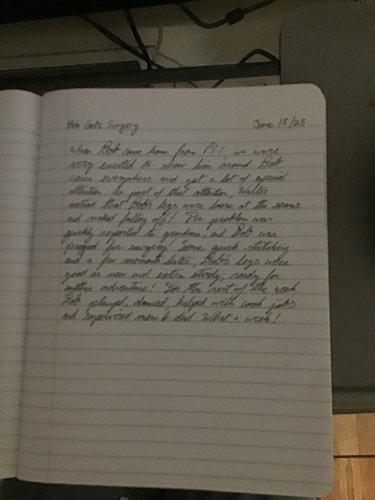 Bob Gets Surgery June 15/25
When Bob came home from PS1, we were
very excited to show him around. Bob
came everywhere and got a lot of special
attention. As part of that attention, Walter
noticed that Bob's legs were loose at the seams
and risked falling off! The problem was
quickly reported to grandma, and Bob was
prepped for surgery! Some quick stitching
and a few moments later, Bob's legs were
good as new and extra sturdy; ready for
another adventure! For the rest of the week
Bob played, danced, helped with jobs
and supervised mom & dad. What a week!